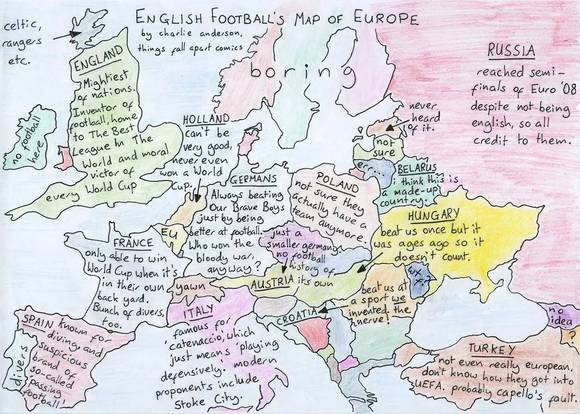 ENGLISH FOOTBALL'S MAP OF EUROPE
by charlie anderson,
things fall apart comics
celtic,
rangers
etc.
ENGLAND
Mightiest
of nations.
Inventor of
football, home
to The Best
League In The
World and moral
victor of
every World Cup
no football
here
boring
RUSSIA
reached semi-
finals of Euro '08
despite not being
english, so all
credit to them.
never
heard
of it.
not
sure
err...
BELARUS
i think this is
a made-up
country.
HOLLAND
can't be
very good,
never even
won a World
Cup.
GERMANS
Always beating
Our Brave Boys
just by being
better at football.
Who won the
bloody war,
anyway?
POLAND
not sure they
actually have a
team anymore.
HUNGARY
beat us once but it
was ages ago so it
doesn't count.
EU
FRANCE
only able to win
World Cup when it's
in their own
back yard.
Bunch of divers,
too.
just a
smaller germany
no football
history of
its own
AUSTRIA
yawn
CROATIA
beat us at
a sport we
invented. the
nerve!
ITALY
famous for
'catenaccio', which
just means 'playing
defensively.' modern
proponents include
Stoke City.
SPAIN known for
diving and
suspicious
brand of
so-called
'passing
football'
divers
no
idea
?
TURKEY
not even really european,
don't know how they got into
UEFA. probably capello's fault.